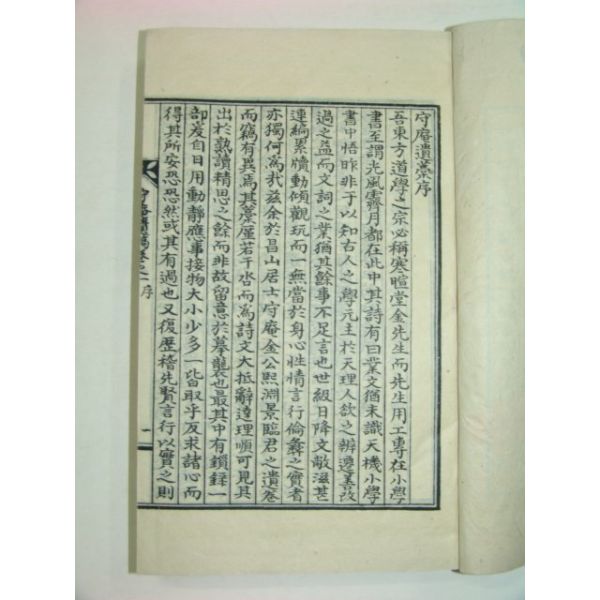 守庵遺藁序
吾東方道學之宗必稱寒暄堂金先生而先生用工專在小學
書至謂光風霽月都在此中其詩有曰業文猶未識天機小學
書中悟昨非于以知古人之學元主於天理人欲之辨遷善改
過之益而文詞之業猶其餘事不足言也世級日降文敝滋甚
連編累牘動傾觀玩而一無當於身心性情言行倫彝之實者
亦獨何爲哉茲余於昌山居士守庵金公熙淵景臨君之遺卷
而竊有異焉其藁厪若干沓而爲詩文大抵辭達理順可見其
出於熟讀精思之餘而非故留意於摹襲也最其中有鎖録一
部爰自日用動靜應事接物大小少多一皆取乎反求諸心而
得其所安恐恐然或其有過也又復歷稽先賢言行以實之則
守庵遺稿卷之一 序 一